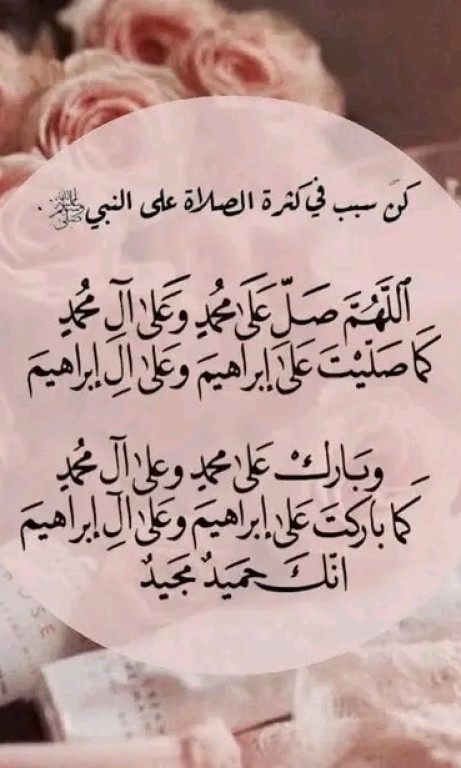 كنّ سبب في كثرة الصلاة على النبي ﷺ .
ٱللَّهُمَّ صَلِّ عَلَىٰ مُحَمَّدٍ وَعَلىٰ آلِ مُحَمَّدٍ
كَمَا صَلّيْتَ عَلىٰ إبراهيمَ وَعَلىٰ آلِ إبراهيمَ
وبَارِكْ عَلىٰ محمدٍ وعلىٰ آل محمَّدٍ
كَمَا باركتَ عَلىٰ إبراهيمَ وَعَلىٰ آلِ إبراهيمَ
انّكَ حميَدٌ مجَيدٌ